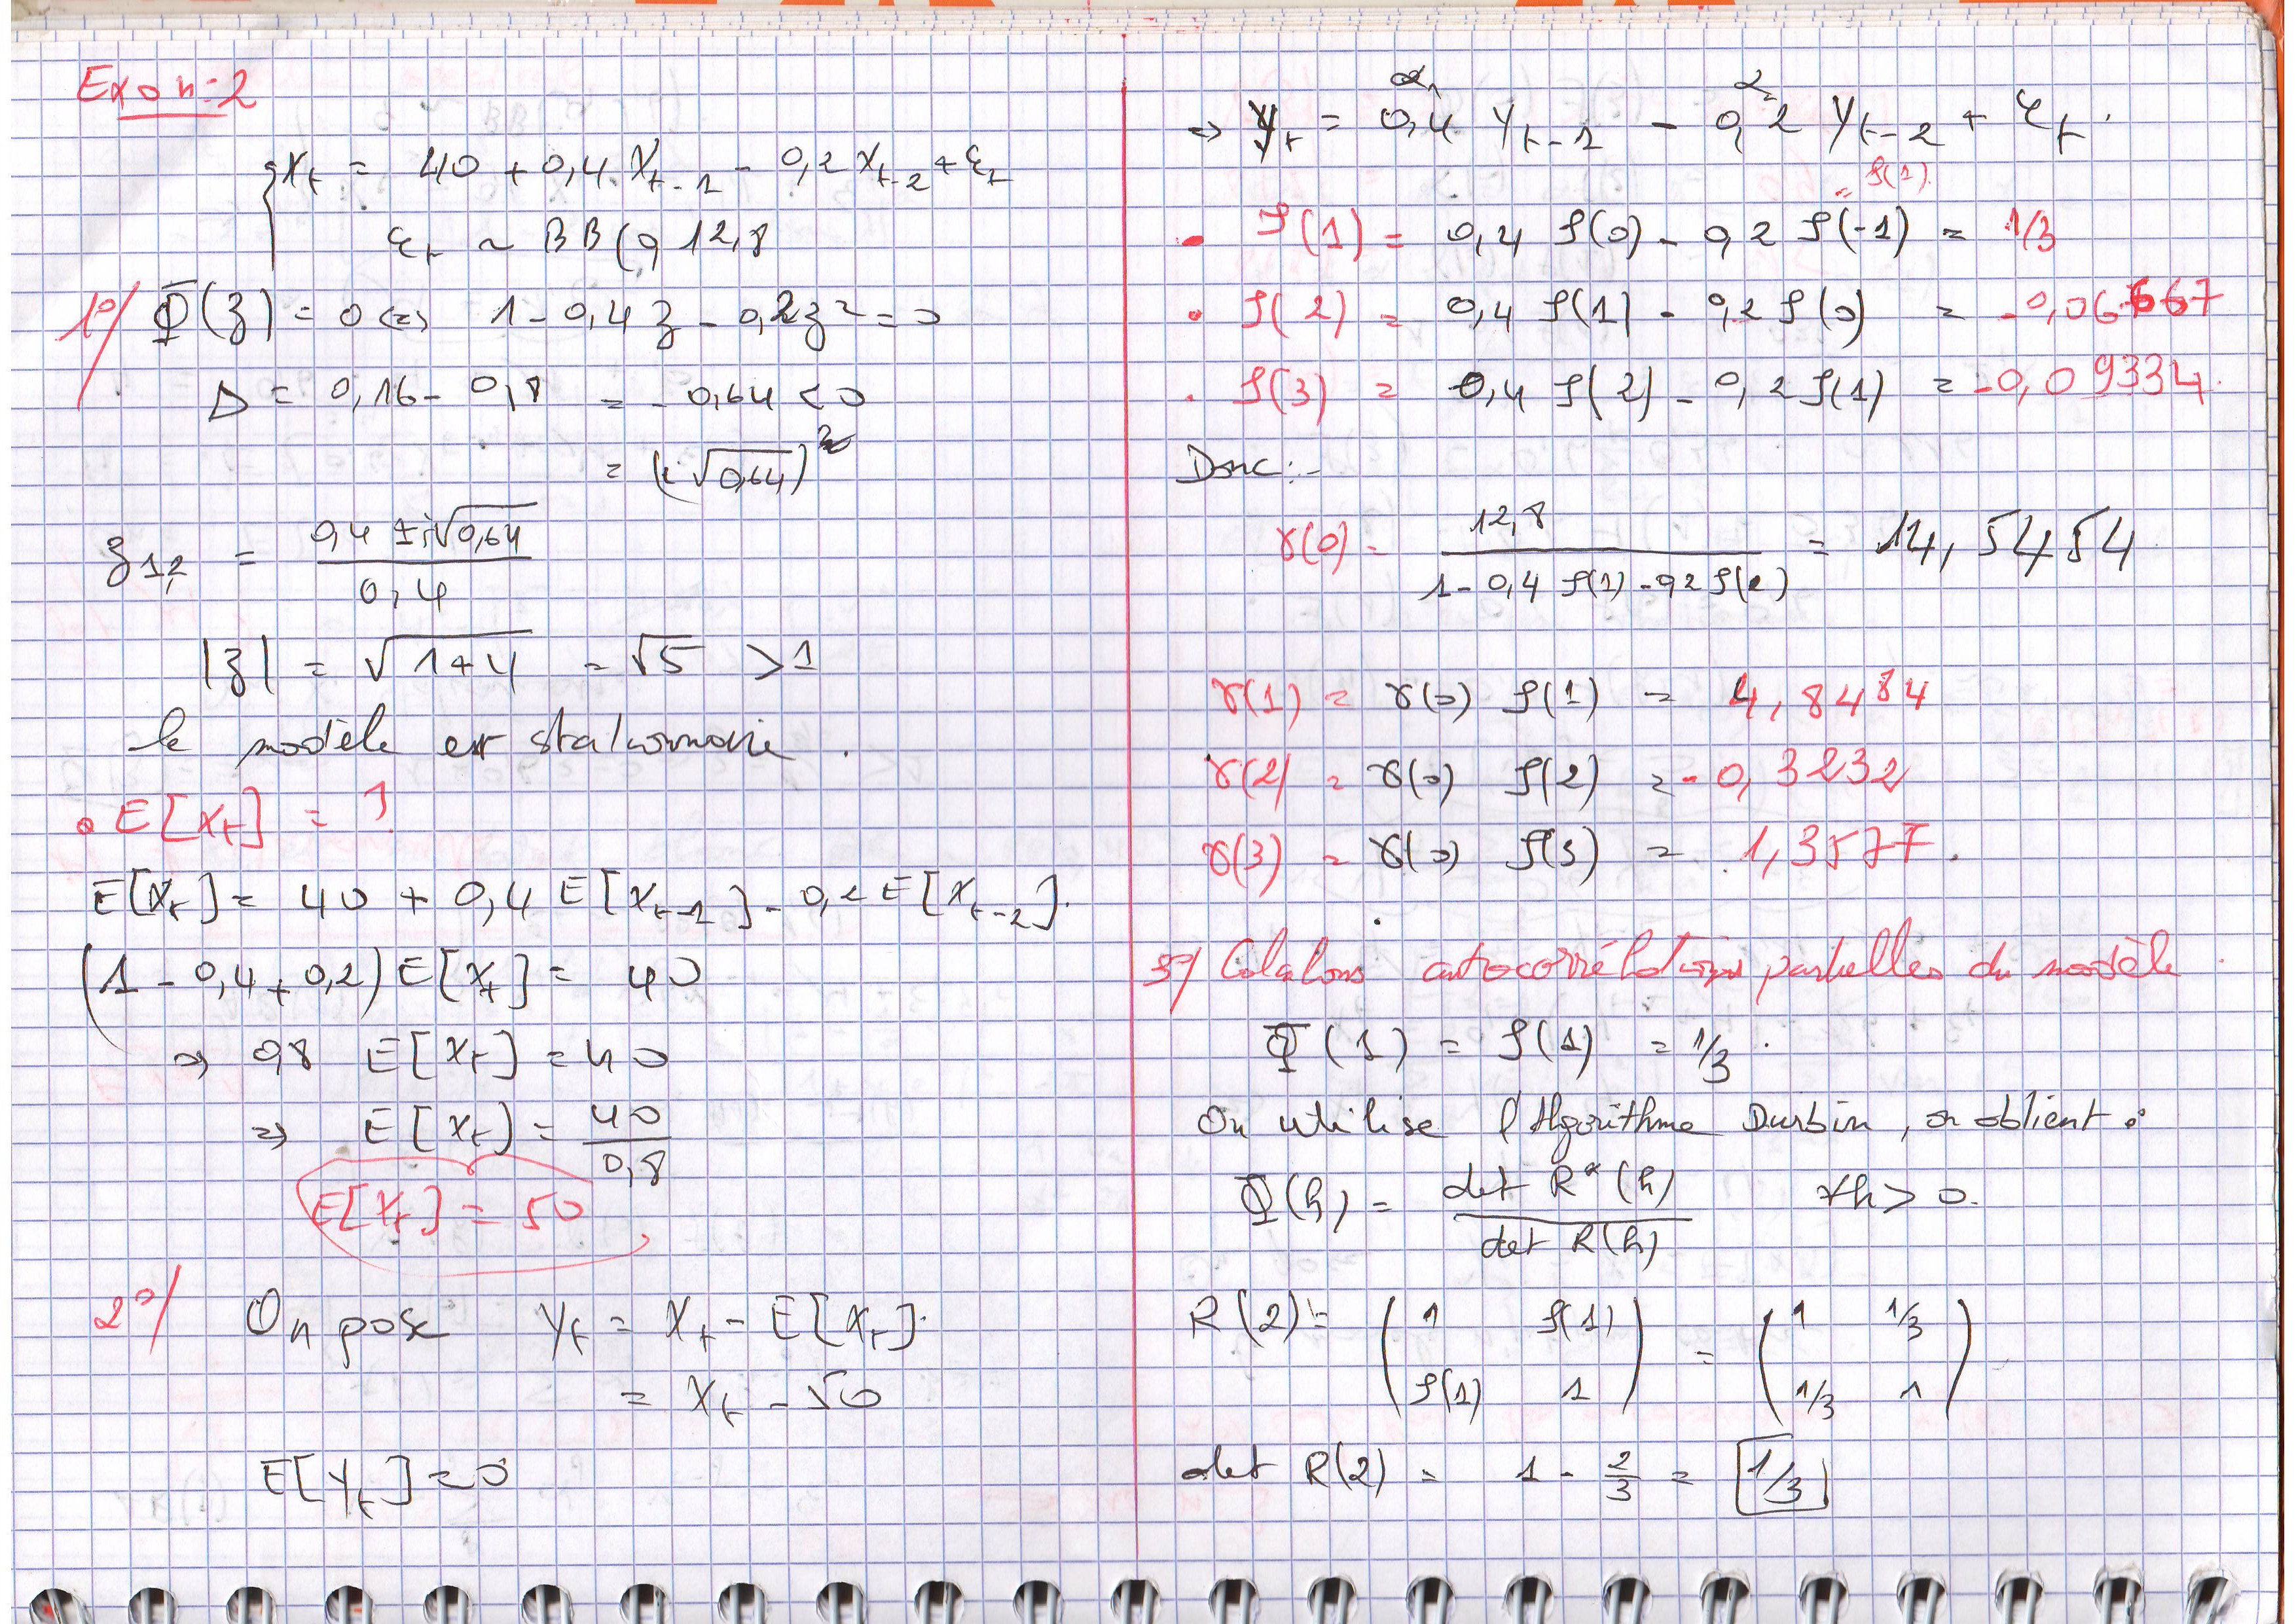 Exo n=2
Xt = 40 + 0,4 Xt-1 - 0,2 Xt-2 + εt
εt ~ BB(0, 12,8
1°/ Φ(z) = 0 <=> 1 - 0,4 z - 0,2 z² = 0
Δ = 0,16 - 0,8 = - 0,64 < 0
= (i √0,64)²
z1,2 = (0,4 ± i√0,64) / 0,4
|z| = √(1+4) = √5 > 1
le modèle est stationnaire.
• E[Xt] = ?
E[Xt] = 40 + 0,4 E[Xt-1] - 0,2 E[Xt-2].
(1 - 0,4 + 0,2) E[Xt] = 40
=> 0,8 E[Xt] = 40
=> E[Xt) = 40 / 0,8
E[Xt] = 50
2°/ On pose Yt = Xt - E[Xt].
= Xt - 50
E[Yt] = 0
α1 α2
=> Yt = 0,4 Yt-1 - 0,2 Yt-2 + εt.
= ρ(1).
• ρ(1) = 0,4 ρ(0) - 0,2 ρ(-1) = 1/3
• ρ(2) = 0,4 ρ(1) - 0,2 ρ(0) = -0,06667
• ρ(3) = 0,4 ρ(2) - 0,2 ρ(1) = -0,09334.
Donc :-
γ(0) = 12,8 / (1 - 0,4 ρ(1) - 0,2 ρ(2)) = 14,5454
γ(1) = γ(0) ρ(1) = 4,8484
γ(2) = γ(0) ρ(2) = -0,3232
γ(3) = γ(0) ρ(3) = 1,3577.
3°/ Calculons autocorrélations partielles du modèle.
Φ(1) = ρ(1) = 1/3.
On utilise l'Algorithme Durbin, on obtient :
Φ(h) = det R*(h) / det R(h) ∀h > 0.
R(2) = ( 1 ρ(1) ) = ( 1 1/3 )
( ρ(1) 1 ) ( 1/3 1 )
det R(2) = 1 - 2/3 = 1/3